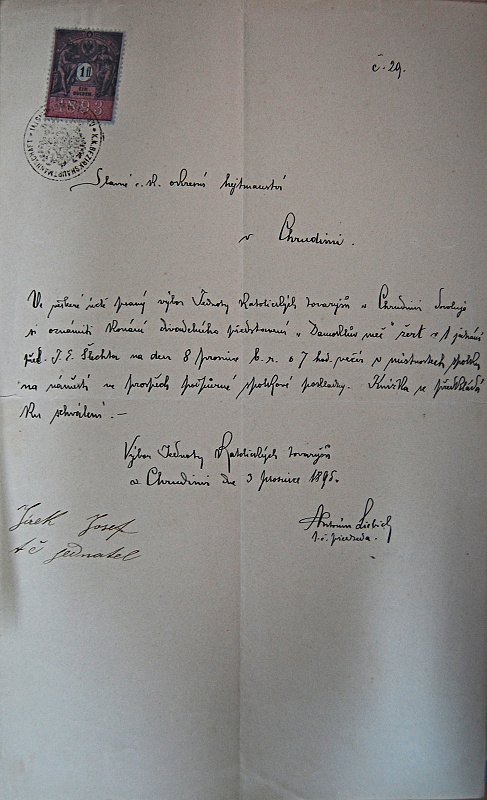 č. 29.
1 fl
EIN
GULDEN
1893
K.K. BEZIRKSHAUPTMANNSCHAFT
Slavné c. k. okresní hejtmanství
v Chrudimi.
Ve vší úctě psaný výbor Jednoty Katolických tovaryšů v Chrudimi dovoluje
si oznámiti konání divadelního představení „Damoklův meč" žert o 1 jednání
přel. J. E. Šlechta na den 8 prosince b. r. o 7 hod. večír v místnostech spolku
na náměstí ve prospěch podpůrné spolkové pokladny. Knížka se předkládá
ku schválení. —
Výbor Jednoty Katolických tovaryšů
v Chrudimi dne 3 prosince 1895.
Jirek Josef
t. č. jednatel
Antonín Liebich
t. č. předseda.